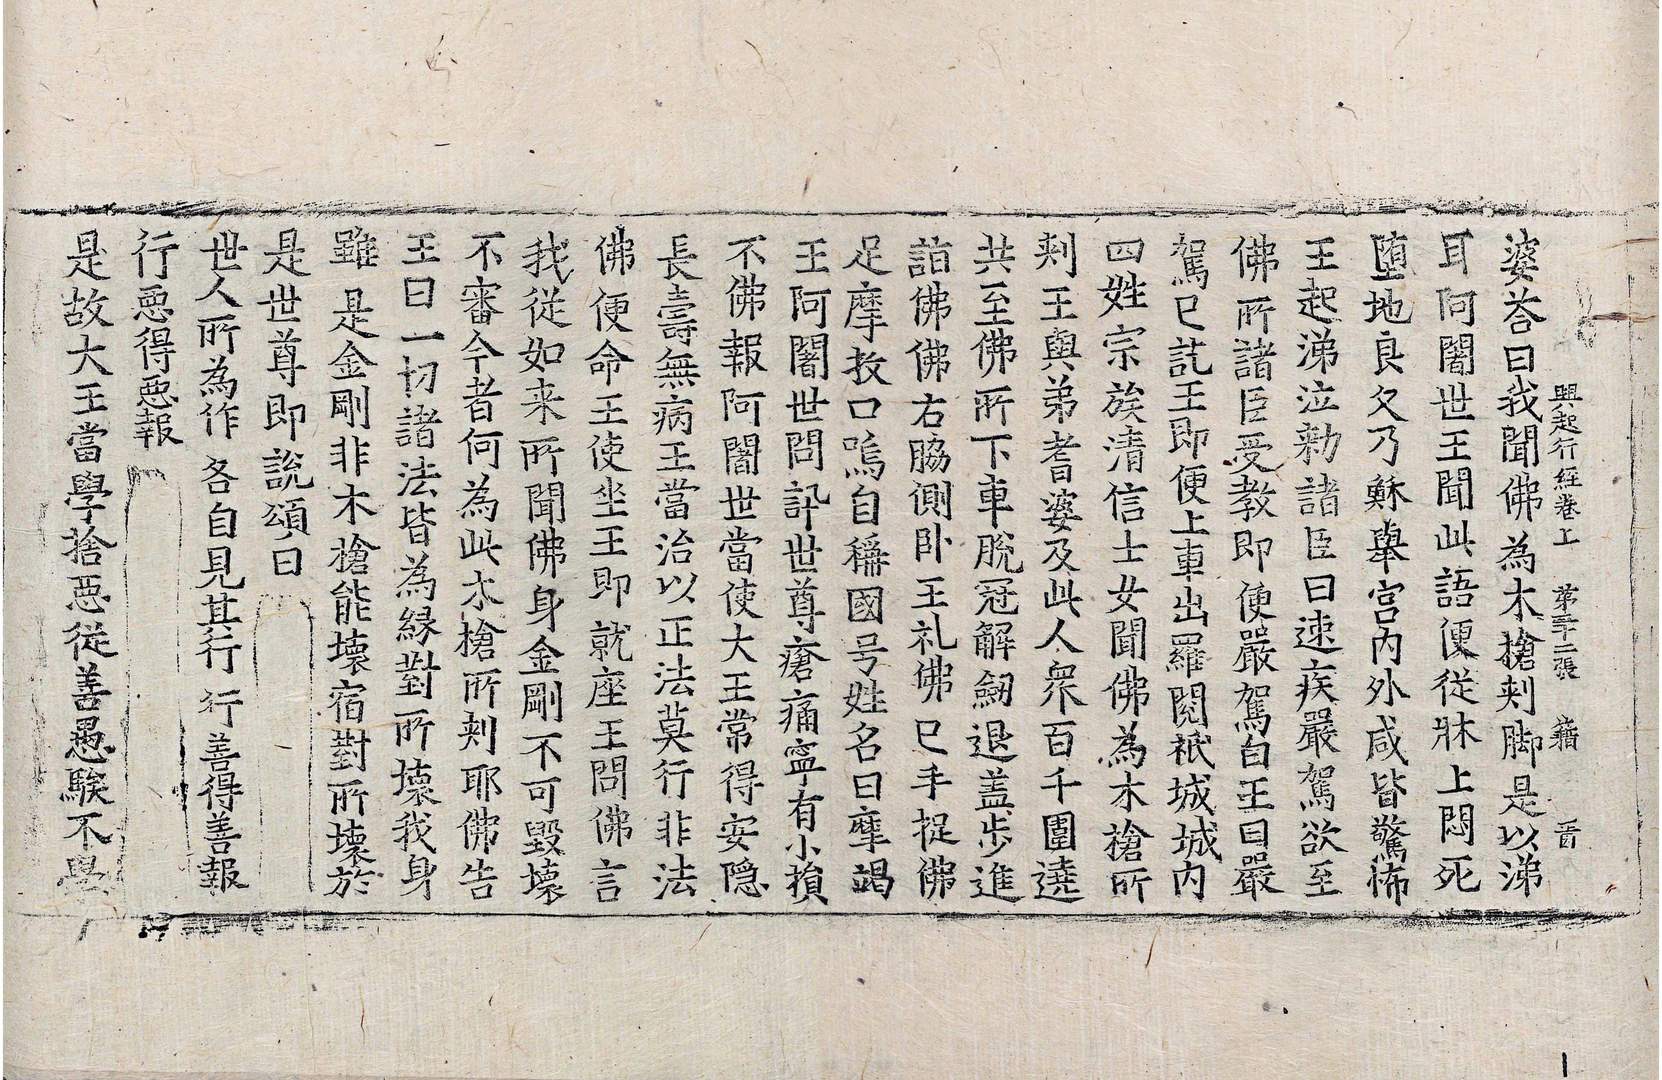 興起行経卷上 第二十二張 籍 晋
婆荅曰我聞佛為木槍刾脚是以涕
耳阿闍世王聞此語便従牀上悶死
堕地良久乃穌舉宫内外咸皆驚怖
王起涕泣勑諸臣曰速疾嚴駕欲至
佛所諸臣受教即便嚴駕白王曰嚴
駕已訖王即便上車出羅閱祇城城内
四姓宗族清信士女聞佛為木槍所
刾王與弟耆婆及此人衆百千圍遶
共至佛所下車脫冠解劒退盖步進
詣佛佛右脇側卧王礼佛已手捉佛
足摩抆口嗚自稱國号姓名曰摩竭
王阿闍世問訊世尊瘡痛寧有小損
不佛報阿闍世當使大王常得安隐
長壽無病王當治以正法莫行非法
佛便命王使坐王即就座王問佛言
我従如来所聞佛身金剛不可毀壞
不審今者何為此木槍所刾耶佛告
王曰一切諸法皆為縁對所壞我身
雖是金剛非木槍能壞宿對所壞於
是世尊即說頌曰
世人所為作 各自見其行 行善得善報
行惡得惡報
是故大王當學捨惡従善愚騃不學